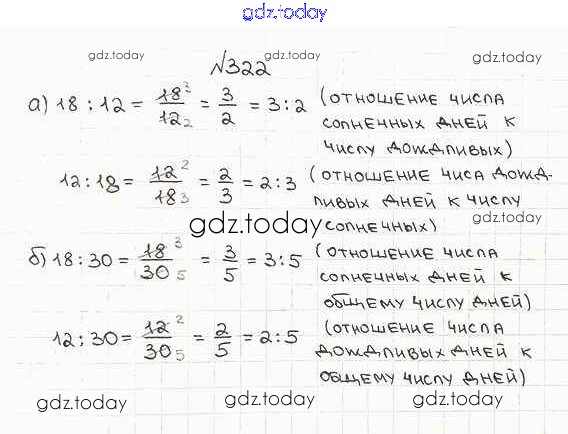 gdz.today
gdz.today gdz.today gdz.today
№322
а) 18 : 12 = 18³/12₂ = 3/2 = 3 : 2 (отношение числа
солнечных дней к
числу дождливых)
12 : 18 = 12²/18₃ = 2/3 = 2 : 3 (отношение числа дожд-
ливых дней к числу
gdz.today gdz.today
солнечных)
б) 18 : 30 = 18³/30₅ = 3/5 = 3 : 5 (отношение числа
солнечных дней к
общему числу дней)
12 : 30 = 12²/30₅ = 2/5 = 2 : 5 (отношение числа
дождливых дней к
общему числу дней)
gdz.today gdz.today gdz.today